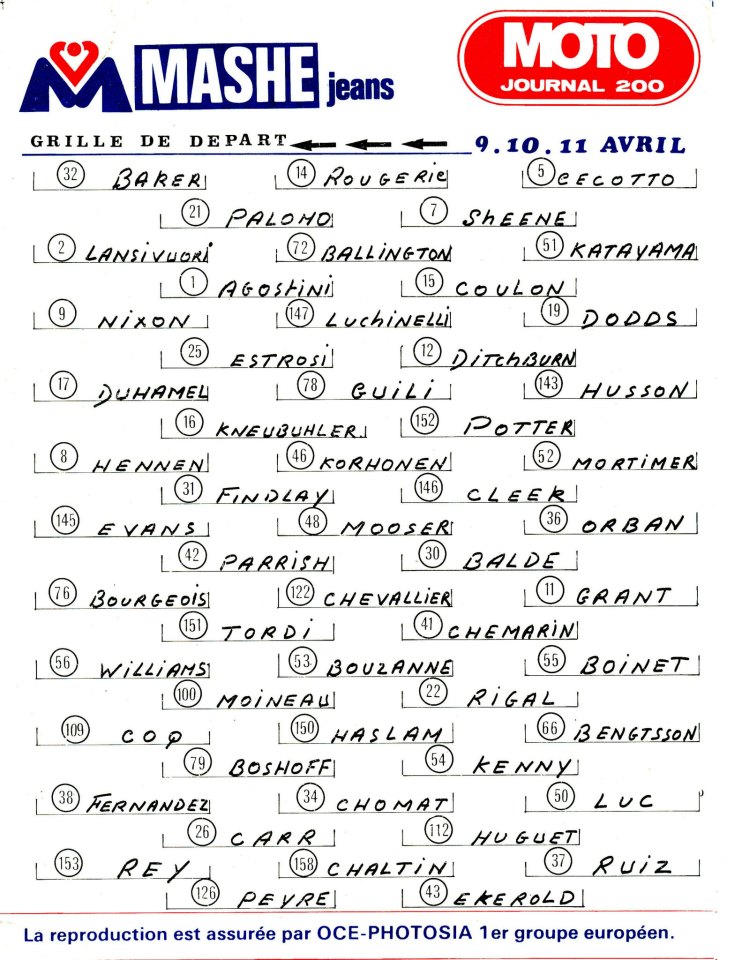 MASHE jeans
MOTO
JOURNAL 200
GRILLE DE DEPART 9.10.11 AVRIL
32 BAKER 14 ROUGERIE 5 CECOTTO
21 PALOMO 7 SHEENE
2 LANSIVUORI 72 BALLINGTON 51 KATAYAMA
1 AGOSTINI 15 COULON
9 NIXON 147 LUCHINELLI 19 DODDS
25 ESTROSI 12 DITCHBURN
17 DUHAMEL 78 GUILI 143 HUSSON
16 KNEUBUHLER 152 POTTER
8 HENNEN 46 KORHONEN 52 MORTIMER
31 FINDLAY 146 CLEEK
145 EVANS 48 MOOSER 36 ORBAN
42 PARRISH 30 BALDE
76 BOURGEOIS 122 CHEVALLIER 11 GRANT
151 TORDI 41 CHEMARIN
56 WILLIAMS 53 BOUZANNE 55 BOINET
100 MOINEAU 22 RIGAL
109 COQ 150 HASLAM 66 BENGTSSON
79 BOSHOFF 54 KENNY
38 FERNANDEZ 34 CHOMAT 50 LUC
26 CARR 112 HUGUET
153 REY 158 CHALTIN 37 RUIZ
126 PEYRE 43 EKEROLD
La reproduction est assurée par OCE-PHOTOSIA 1er groupe européen.